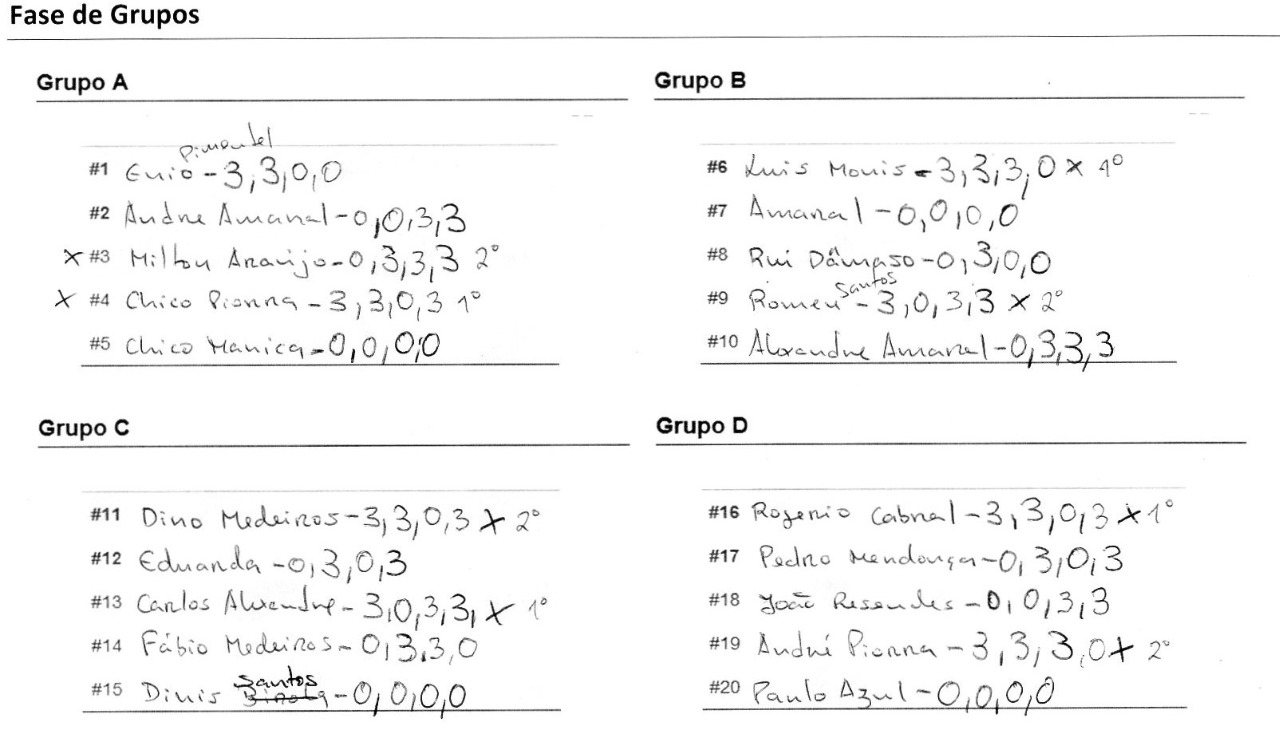 Fase de Grupos
Grupo A
Pimentel
#1 Enio - 3,3,0,0
#2 Andre Amaral - 0,0,3,3
X #3 Milton Araujo - 0,3,3,3 2º
X #4 Chico Pionna - 3,3,0,3 1º
#5 Chico Manica - 0,0,0,0
Grupo B
#6 Luis Monis - 3,3,3,0 X 1º
#7 Amaral - 0,0,0,0
#8 Rui Dâmaso - 0,3,0,0
Santos
#9 Romeu - 3,0,3,3 X 2º
#10 Alexandre Amaral - 0,3,3,3
Grupo C
#11 Dino Medeiros - 3,3,0,3 X 2º
#12 Eduarda - 0,3,0,3
#13 Carlos Alexandre - 3,0,3,3, X 1º
#14 Fábio Medeiros - 0,3,3,0
Santos
#15 Dinis - 0,0,0,0
Grupo D
#16 Rogerio Cabral - 3,3,0,3 X 1º
#17 Pedro Mendonça - 0,3,0,3
#18 João Resendes - 0,0,3,3
#19 André Pionna - 3,3,3,0 X 2º
#20 Paulo Azul - 0,0,0,0